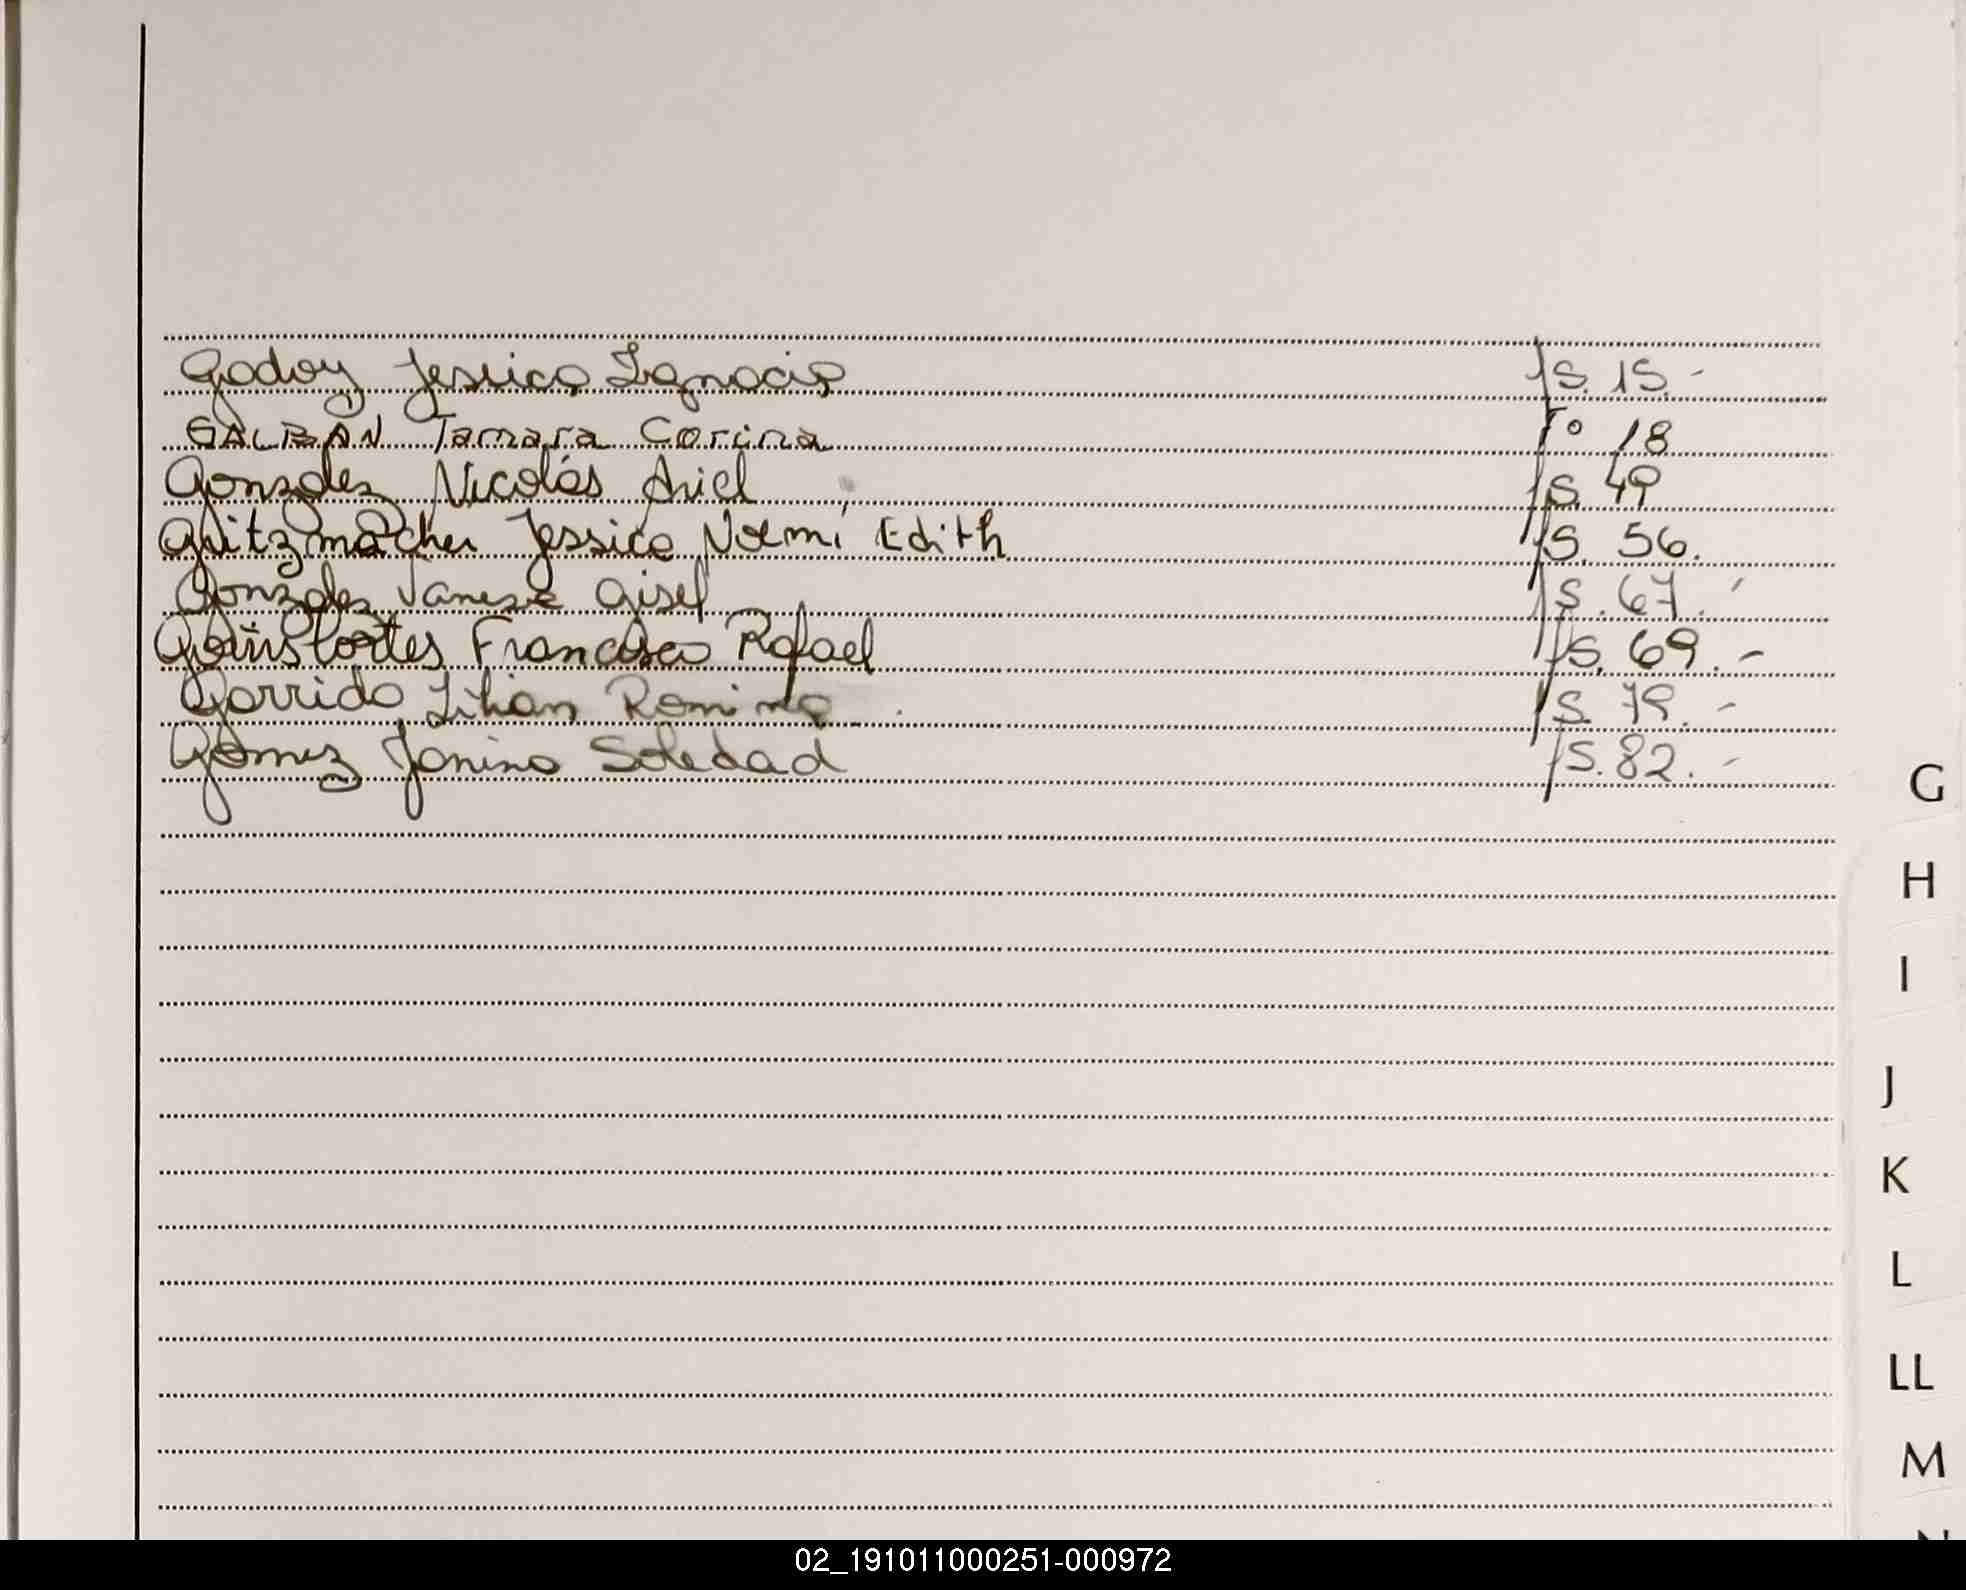 Godoy Jessica Ignacia fs. 15.-
GALBAN Tamara Corina F° 18
Gonzalez Nicolás Ariel fs. 49
Gritzmacher Jessica Noemí Edith fs. 56.
Gonzalez Vanesa Gisel fs. 67.-
Francisco Rafael fs. 69.-
Garrido Lilian Romina fs. 79.-
Gómez Janina Soledad fs. 82.-
G
H
I
J
K
L
LL
M
N
02_191011000251-000972